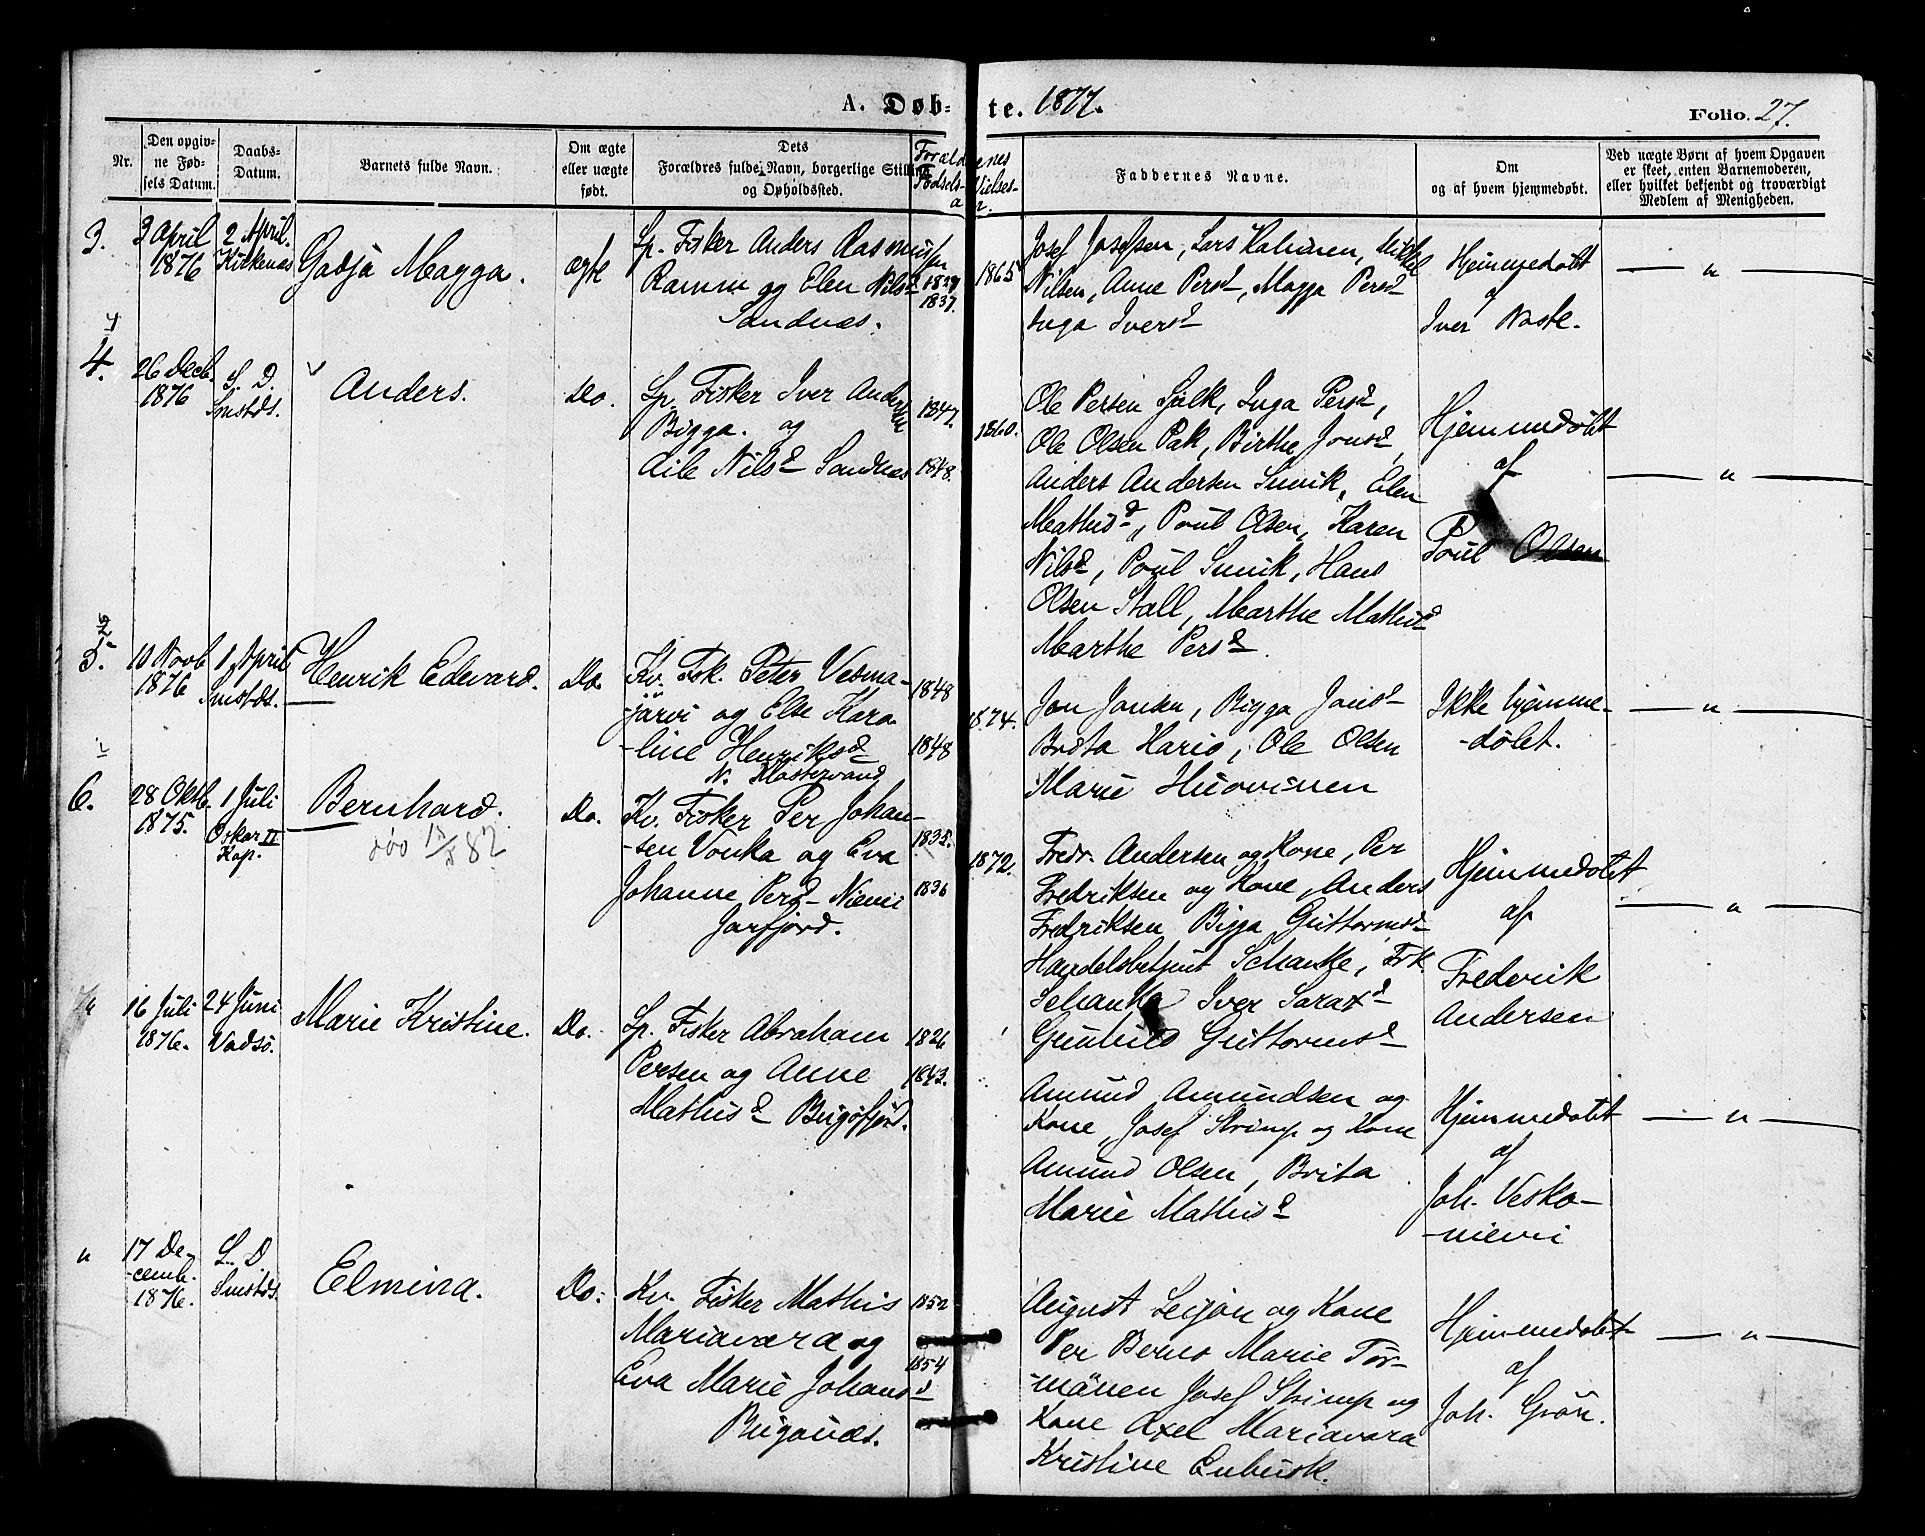 A. Døb- te. 1877.
Folio. 27.
Nr.
Den opgiv-
ne Fød-
sels Datum.
Daabs-
Datum.
Barnets fulde Navn.
Om ægte
eller uægte
født.
Dets
Forældres fulde Navn, borgerlige Stilling
og Opholdssted.
Faddernes Navne.
Om
og af hvem hjemmedøbt.
Ved uægte Børn af hvem Opgaven
er skeet, enten Barnemoderen,
eller hvilket bekjendt og troværdigt
Medlem af Menigheden.
3.
3 April
1876
2 April.
Kirkenes
Gadja Magga.
ægte
Lp. Fisker Anders Rasmussen
Ramm og Elen Nilsd
Sandnæs.
1837.
1865
Josef Josefsen, Lars Halonen, Mikkel
Nilsen, Anne Persd, Magga Persd
Inga Iversd
Hjemmedøbt
af
Iver Noste.
— " —
4.
26 Decb.
1876
S. D.
Smstds.
Anders.
Do.
Lp. Fisker Iver Andersen
Bigga. og
Aile Nilsd Sandnes
1847.
1848.
1860.
Ole Persen Sjalk, Inga Persd,
Ole Olsen Pak, Birthe Jonsd,
Anders Andersen Smik, Elen
Mathisd, Poul Olsen, Karen
Nilsd, Poul Smik, Hans
Olsen Stall, Marthe Mathisd
Marthe Persd.
Hjemmedøbt
af
Poul Olsen
— " —
5.
10 Novb
1876
1 April
Smstds.
Henrik Edevard.
Do.
Kv. Fsk. Peter Vesma-
-järvi og Else Karo-
-line Henriksd
N. Klostervand
1848
1848
1874.
Jon Jonsen, Bigga Jonsd
Brita Hario, Ole Olsen
Marie Huovinen
Ikke hjemme-
-døbt.
— " —
6.
28 Oktb.
1875.
1 Juli
Oskar II
Kap.
Bernhard.
Do.
Kv. Fisker Per Johan-
-sen Vouka og Eva
Johanne Persd Niemi
Jarfjord.
1835.
1836
1872.
Fredr. Andersen og Kone, Per
Fredriksen og Kone, Anders
Fredriksen, Bigga Guttormsd
Handelsbetjent Schanke, Frk.
Schanke Iver Saraxd
Gunhild Guttormsd
Hjemmedøbt
af
Frederik
Andersen
— " —
16 Juli
1876.
24 Juni
Vadsö.
Marie Kristine.
Do.
Lp. Fisker Abraham
Persen og Anne
Mathisd Bugöfjord.
1826
1843.
Amund Amundsen og
Kone, Josef Strimp og Kone
Amund Olsen, Brita
Marie Mathisd
Hjemmedøbt
af
Joh. Vesko-
-niemi
— " —
"
17 De-
-cemb.
1876.
S. D.
Smstds.
Elmina.
Do.
Kv. Fisker Mathis
Mariavara og
Eva Marie Johansd
Bugönæs.
1852
1854
August Seijon og Kone
Per Berno Marie Tör-
-mänen Josef Strimp og
Kone Axel Mariavara
Kristine Enbusk.
Hjemmedøbt
af
Joh. Grön.
— " —